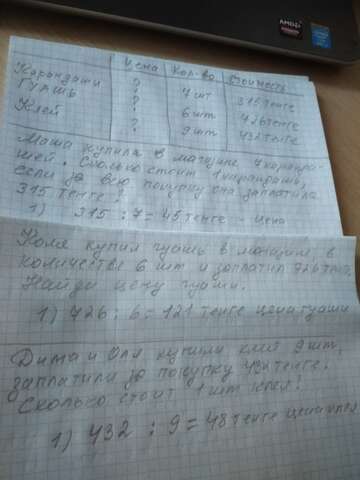 AMD
Цена Кол-во Стоимость
Карандаши ? 7 шт 315 тенге
Гуашь ? 6 шт 726 тенге
Клей ? 9 шт 432 тенге
Маша купила в магазине 7 каранда-
шей. Сколько стоит 1 карандаш,
если за всю покупку она заплатила
315 тенге?
1) 315 : 7 = 45 тенге - цена
Коля купил гуашь в магазине, в
количестве 6 шт и заплатил 726 тенге.
Найди цену гуаши.
1) 726 : 6 = 121 тенге цена гуаши
Дима и Оля купили клей 9 шт,
заплатили за покупку 432 тенге.
Сколько стоит 1 шт клея?
1) 432 : 9 = 48 тенге цена клея